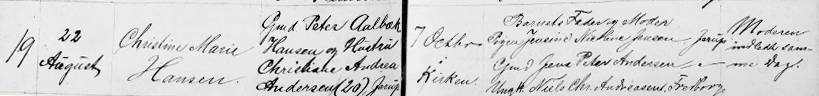 19
22
August
Christine Marie
Hansen.
Gmd Peter Aalbæk
Hansen og Hustru
Christiane Andrea
Andersen (20) Jerup
7 Octbr
i
Kirken
Barnets Fader og Moder
Pigen Jensine Nikoline Jensen Jerup
Gmd Jens Peter Andersen
Ungk Niels Chr. Andreasens,
Moderen
indledt sam-
me Dag.